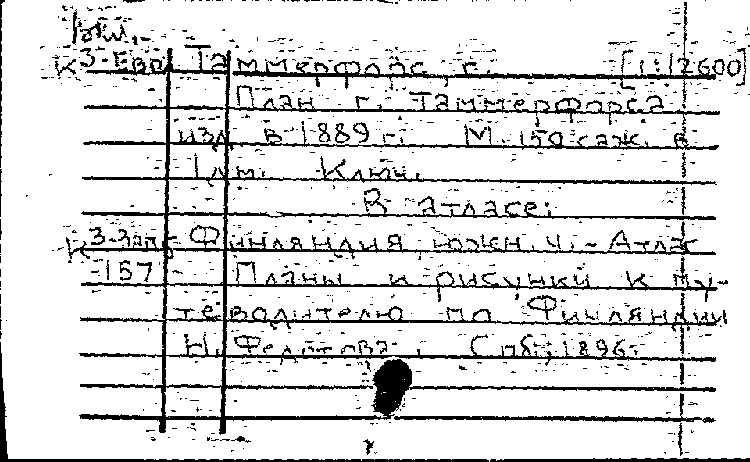 К 3-Евр Таммерфорс, г. [1:12600]
План г. Таммерфорса
изд. в 1889 г. М. 150 саж. в
1 дм. Ключ.
В атласе:
К 3-Зап Финляндия, южн. ч. - Атлас
-157 Планы и рисунки к пу-
теводителю по Финляндии
Н. Федотова. Спб., 1896.